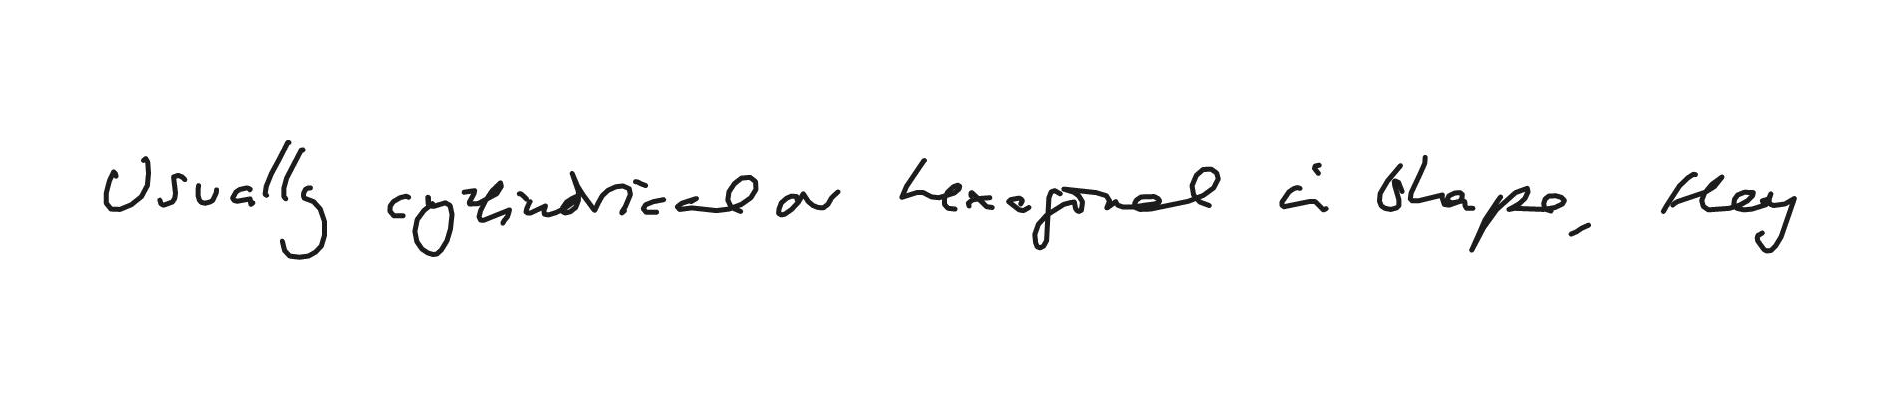 Usually cylindrical or hexagonal in shape, they